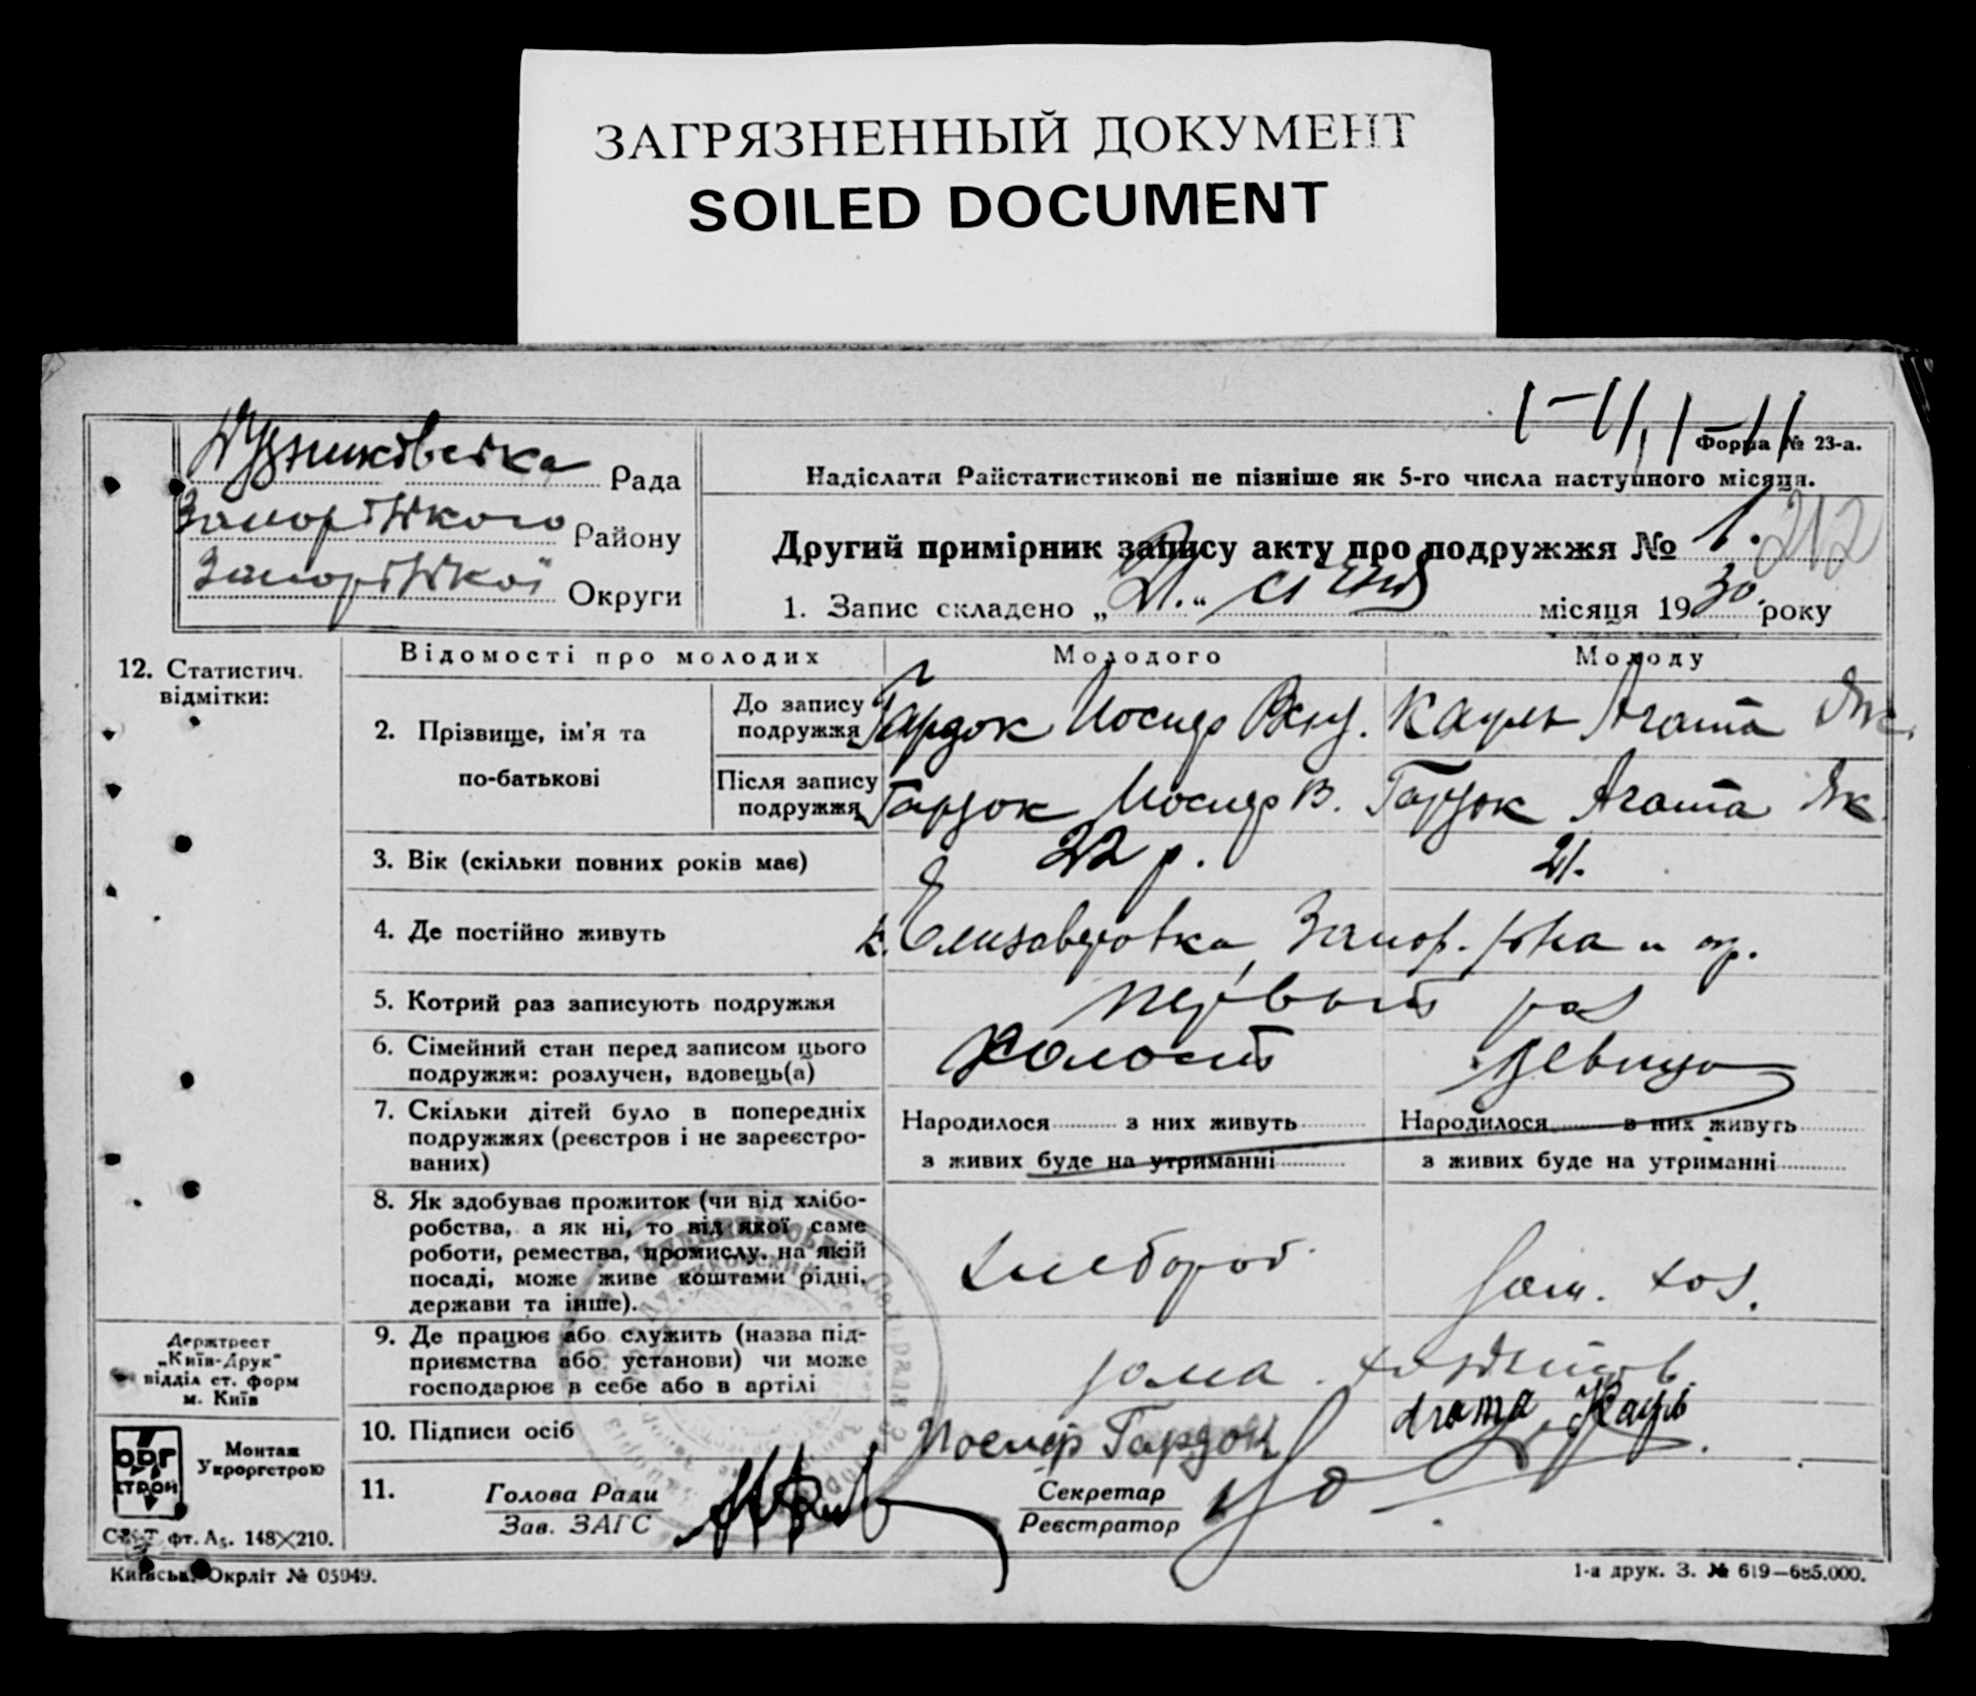 ЗАГРЯЗНЕННЫЙ ДОКУМЕНТ
SOILED DOCUMENT
Форма № 23-а.
Рада
Району
Округи
Надіслати Райстатистикові не пізніше як 5-го числа наступного місяця.
Другий примірник запису акту про подружжя № 1. 212
1. Запис складено „21.“ січня місяця 1930 року
12. Статистич. відмітки:
Відомості про молодих
Молодого
Молоду
2. Прізвище, ім'я та по-батькові
До запису подружжя
Гардок Иосиф Кауль Агата Як.
Після запису подружжя
Гардок Иосиф В. Гардок Агата Як.
3. Вік (скільки повних років має) 22 р. 21.
4. Де постійно живуть к. Елизаветовка, Запор. р-на и окр.
5. Котрий раз записують подружжя первый раз
6. Сімейний стан перед записом цього подружжя: розлучен, вдовець(а)
Холост девица
7. Скільки дітей було в попередніх подружжях (реєстров і не зареєстро-
ваних)
Народилося з них живуть
з живих буде на утриманні
Народилося з них живуть
з живих буде на утриманні
8. Як здобуває прожиток (чи від хлібо-
робства, а як ні, то від якої саме
роботи, ремества, промислу, на якій
посаді, може живе коштами рідні,
держави та інше).
Хлебороб дом. хоз.
9. Де працює або служить (назва під-
приємства або установи) чи може
господарює в себе або в артілі
дома
10. Підписи осіб
Иосиф Гардок Агата Кауль
11. Голова Ради
Зав. ЗАГС
Секретар
Реєстратор
Держтрест
„Київ-Друк“
відділ ст. форм
м. Київ
ОРГ
СТРОЙ
Монтаж
Укроргстрою
фт. А₅. 148×210.
Київськ. Окрліт № 05949.
1-а друк. З. № 619—685.000.